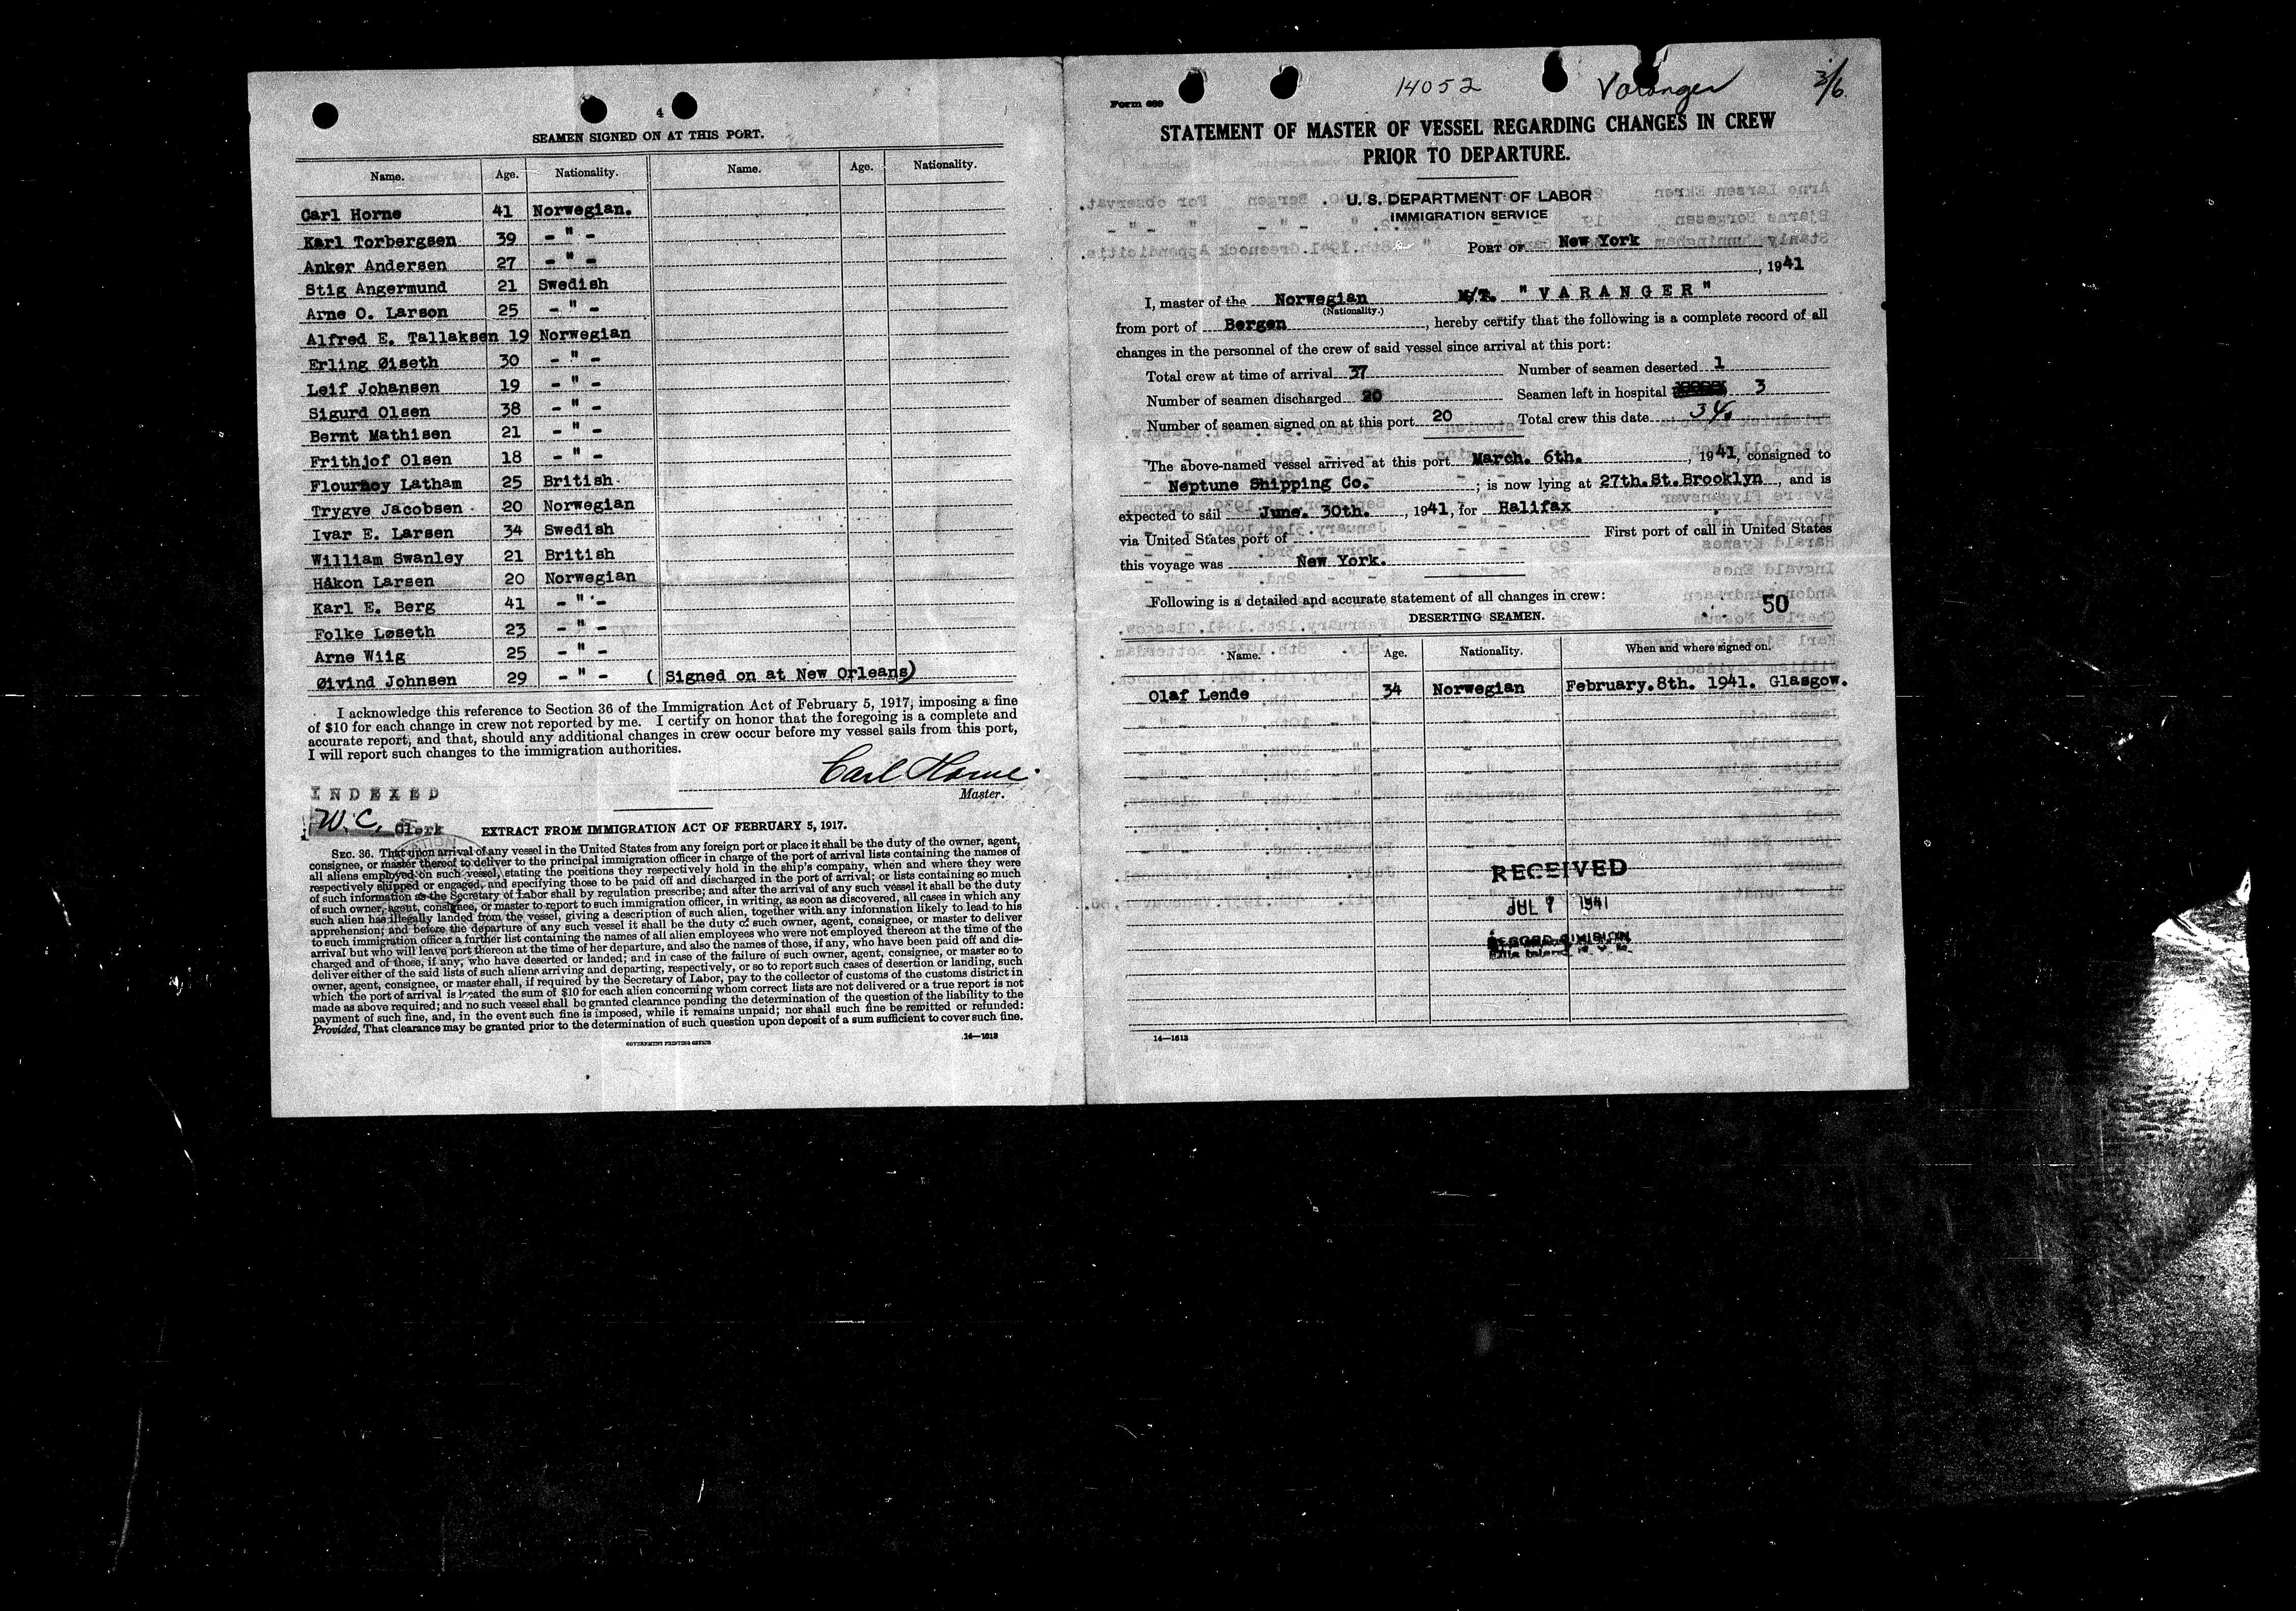 4
SEAMEN SIGNED ON AT THIS PORT.
Name. Age. Nationality. Name. Age. Nationality.
Carl Horne 41 Norwegian.
Karl Torbergsen 39 - " -
Anker Andersen 27 - " -
Stig Angermund 21 Swedish
Arne O. Larson 25 - " -
Alfred E. Tallaksen 19 Norwegian
Erling Øiseth 30 - " -
Leif Johansen 19 - " -
Sigurd Olsen 38 - " -
Bernt Mathisen 21 - " -
Frithjof Olsen 18 - " -
Flournoy Latham 25 British
Trygve Jacobsen 20 Norwegian
Ivar E. Larsen 34 Swedish
William Swanley 21 British
Håkon Larsen 20 Norwegian
Karl E. Berg 41 - " -
Folke Løseth 23 - " -
Arne Wiig 25 - " -
Øivind Johnsen 29 - " - (Signed on at New Orleans)
I acknowledge this reference to Section 36 of the Immigration Act of February 5, 1917, imposing a fine
of $10 for each change in crew not reported by me. I certify on honor that the foregoing is a complete and
accurate report, and that, should any additional changes in crew occur before my vessel sails from this port,
I will report such changes to the immigration authorities.
Carl Horne.
Master.
INDEXED
W. C. Clerk
EXTRACT FROM IMMIGRATION ACT OF FEBRUARY 5, 1917.
SEC. 36. That upon arrival of any vessel in the United States from any foreign port or place it shall be the duty of the owner, agent,
consignee, or master thereof to deliver to the principal immigration officer in charge of the port of arrival lists containing the names of
all aliens employed on such vessel, stating the positions they respectively hold in the ship's company, when and where they were
respectively shipped or engaged, and specifying those to be paid off and discharged in the port of arrival; or lists containing so much
of such information as the Secretary of Labor shall by regulation prescribe; and after the arrival of any such vessel it shall be the duty
of such owner, agent, consignee, or master to report to such immigration officer, in writing, as soon as discovered, all cases in which any
such alien has illegally landed from the vessel, giving a description of such alien, together with any information likely to lead to his
apprehension; and before the departure of any such vessel it shall be the duty of such owner, agent, consignee, or master to deliver
to such immigration officer a further list containing the names of all alien employees who were not employed thereon at the time of the
arrival but who will leave port thereon at the time of her departure, and also the names of those, if any, who have been paid off and dis-
charged and of those, if any, who have deserted or landed; and in case of the failure of such owner, agent, consignee, or master so to
deliver either of the said lists of such aliens arriving and departing, respectively, or so to report such cases of desertion or landing, such
owner, agent, consignee, or master shall, if required by the Secretary of Labor, pay to the collector of customs of the customs district in
which the port of arrival is located the sum of $10 for each alien concerning whom correct lists are not delivered or a true report is not
made as above required; and no such vessel shall be granted clearance pending the determination of the question of the liability to the
payment of such fine, and, in the event such fine is imposed, while it remains unpaid; nor shall such fine be remitted or refunded:
Provided, That clearance may be granted prior to the determination of such question upon deposit of a sum sufficient to cover such fine.
GOVERNMENT PRINTING OFFICE 14—1613
14052 Varanger 3/6
Form 689
STATEMENT OF MASTER OF VESSEL REGARDING CHANGES IN CREW
PRIOR TO DEPARTURE.
U. S. DEPARTMENT OF LABOR
IMMIGRATION SERVICE
PORT OF New York
, 1941
I, master of the Norwegian M/T. "VARANGER"
(Nationality.)
from port of Bergen, hereby certify that the following is a complete record of all
changes in the personnel of the crew of said vessel since arrival at this port:
Total crew at time of arrival 37 Number of seamen deserted 1
Number of seamen discharged 20 Seamen left in hospital 3
Number of seamen signed on at this port 20 Total crew this date 34.
The above-named vessel arrived at this port March. 6th., 1941, consigned to
Neptune Shipping Co.; is now lying at 27th.St.Brooklyn, and is
expected to sail June. 30th., 1941, for Halifax
via United States port of First port of call in United States
this voyage was New York.
Following is a detailed and accurate statement of all changes in crew:
50
DESERTING SEAMEN.
Name. Age. Nationality. When and where signed on.
Olaf Lende 34 Norwegian February.8th. 1941. Glasgow.
RECEIVED
JUL 7 1941
RECORD DIVISION
Ellis Island N. Y.
14—1613